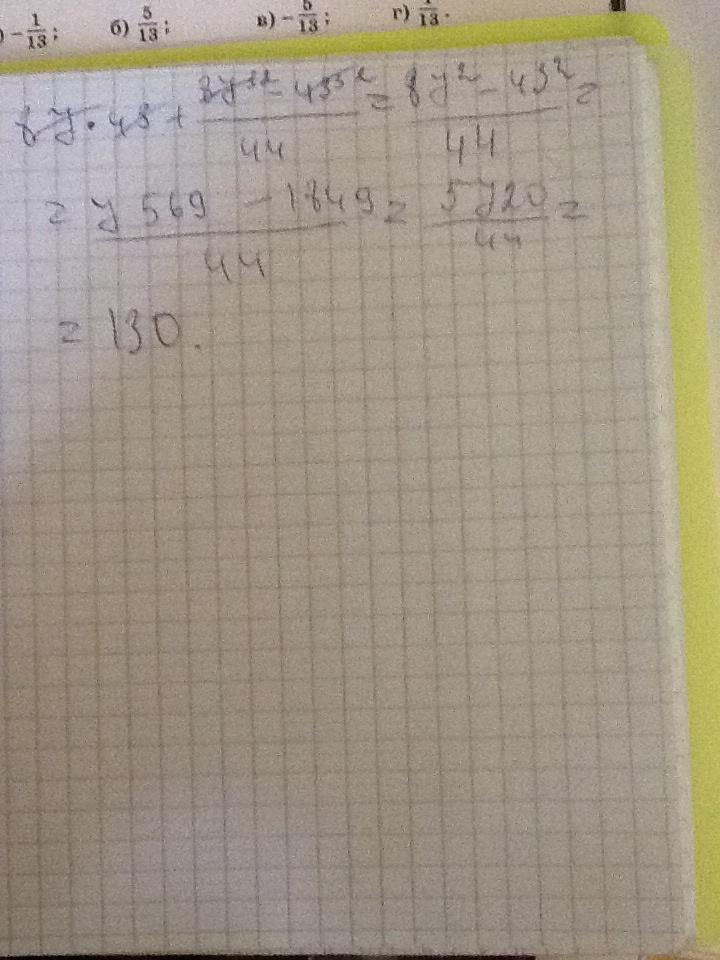 ) −1/13; б) 5/13; в) −5/13; г) 1/13.
87 · 43 + (87² − 43²)/44 = (87² − 43²)/44 =
= (7569 − 1849)/44 = 5720/44 =
= 130.